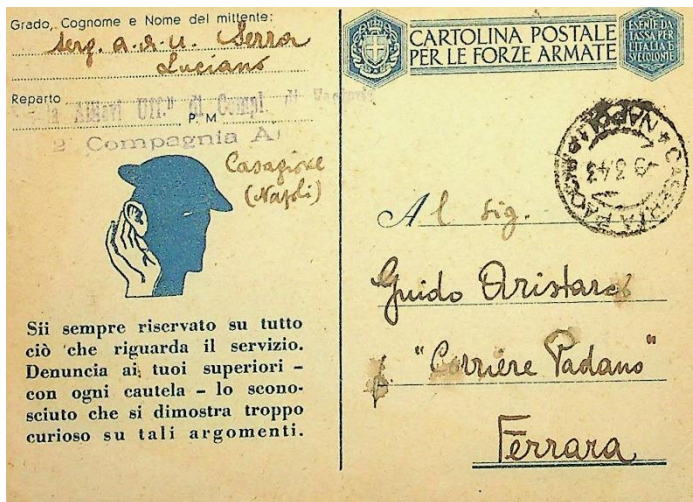 Grado, Cognome e Nome del mittente:
serg. a.d.u. Serra
Luciano
Reparto
Allievi Uff.li di Compl. di
P. M.
2ª Compagnia A)
Casagiove
(Napoli)
Sii sempre riservato su tutto
ciò che riguarda il servizio.
Denuncia ai tuoi superiori –
con ogni cautela – lo scono-
sciuto che si dimostra troppo
curioso su tali argomenti.
CARTOLINA POSTALE
PER LE FORZE ARMATE
ESENTE DA
TASSA PER
L'ITALIA E
SUE COLONIE
CASERTA NAPOLI
3.43
Al sig.
Guido Aristarco
"Corriere Padano"
Ferrara